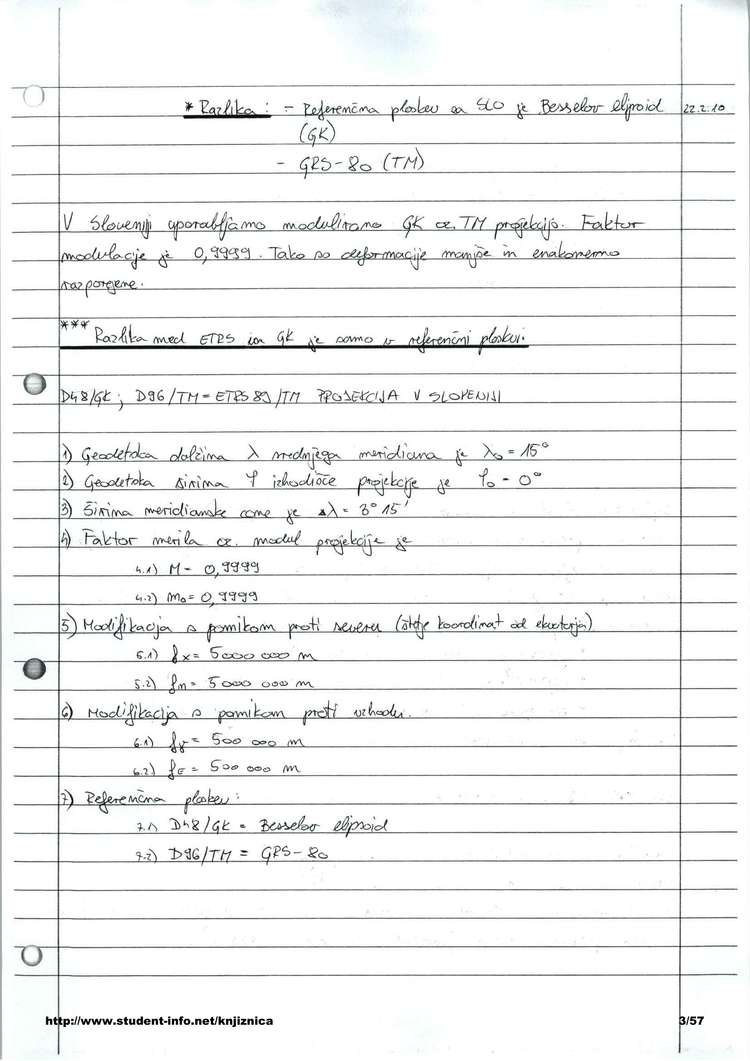 * Razlika : - Referenčna ploskev za SLO je Besselov elipsoid 22.2.10
(GK)
- GRS-80 (TM)
V Sloveniji uporabljamo modulirano GK oz. TM projekcijo. Faktor
modulacije je 0,9999. Tako so deformacije manjše in enakomerno
razporejene.
*** Razlika med ETRS in GK je samo v referenčni ploskvi.
D48/GK ; D96/TM = ETRS 89/TM PROJEKCIJA V SLOVENIJI
1) Geodetska dolžina λ srednjega meridiana je λ₀ = 15°
2) Geodetska širina φ izhodišče projekcije je φ₀ = 0°
3) Širina meridianske cone je Δλ = 3° 15'
4) Faktor merila oz. modul projekcije je
4.1) M = 0,9999
4.2) m₀ = 0,9999
5) Modifikacija s pomikom proti severu (štetje koordinat od ekvatorja)
5.1) fx = 5000 000 m
5.2) fn = 5000 000 m
6) Modifikacija s pomikom proti vzhodu.
6.1) fy = 500 000 m
6.2) fE = 500 000 m
7) Referenčna ploskev :
7.1) D48/GK = Besselov elipsoid
7.2) D96/TM = GRS-80
http://www.student-info.net/knjiznica 3/57